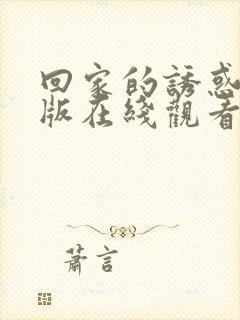 回家的誘惑
版在綫觀看
蕭言